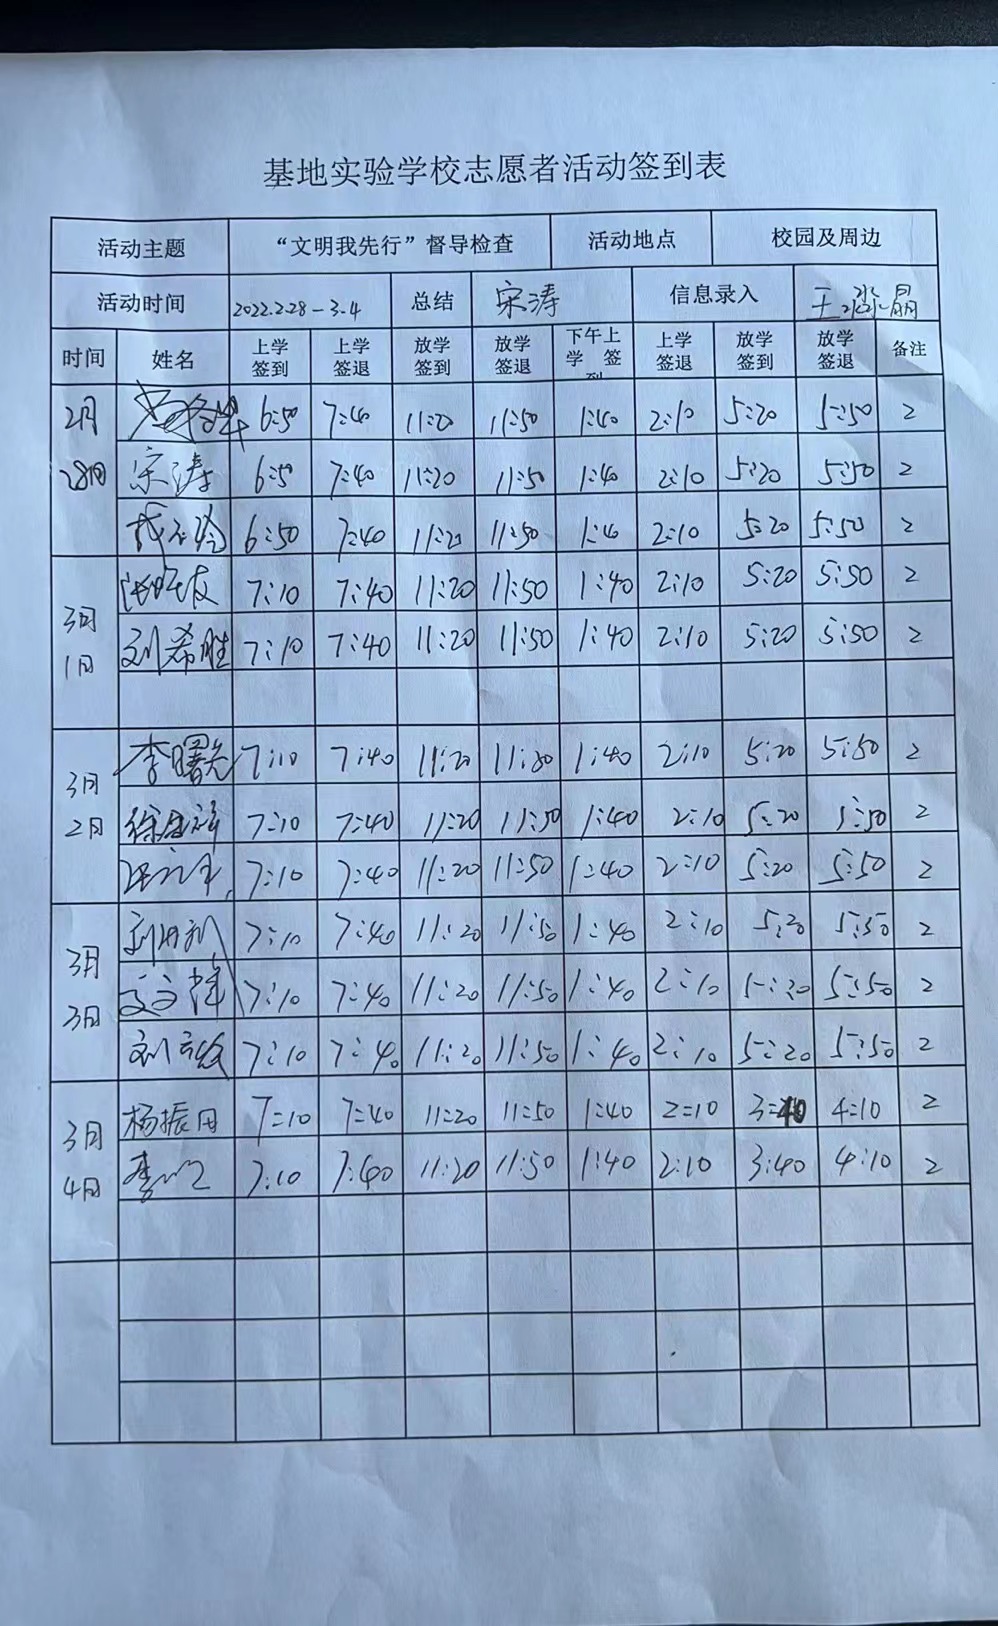 基地实验学校志愿者活动签到表
活动主题 “文明我先行”督导检查 活动地点 校园及周边
活动时间 2022.2.28-3.4 总结 宋涛 信息录入 王淼晶
时间 姓名 上学签到 上学签退 放学签到 放学签退 下午上学签到 上学签退 放学签到 放学签退 备注
2月28日 6:50 7:40 11:20 11:50 1:40 2:10 5:20 5:50 2
宋涛 6:50 7:40 11:20 11:50 1:40 2:10 5:20 5:50 2
6:50 7:40 11:20 11:50 1:40 2:10 5:20 5:50 2
3月1日 7:10 7:40 11:20 11:50 1:40 2:10 5:20 5:50 2
刘希胜 7:10 7:40 11:20 11:50 1:40 2:10 5:20 5:50 2
3月2日 李曙光 7:10 7:40 11:20 11:50 1:40 2:10 5:20 5:50 2
7:10 7:40 11:20 11:50 1:40 2:10 5:20 5:50 2
7:10 7:40 11:20 11:50 1:40 2:10 5:20 5:50 2
3月3日 7:10 7:40 11:20 11:50 1:40 2:10 5:20 5:50 2
7:10 7:40 11:20 11:50 1:40 2:10 5:20 5:50 2
7:10 7:40 11:20 11:50 1:40 2:10 5:20 5:50 2
3月4日 杨振田 7:10 7:40 11:20 11:50 1:40 2:10 3:40 4:10 2
7:10 7:40 11:20 11:50 1:40 2:10 3:40 4:10 2